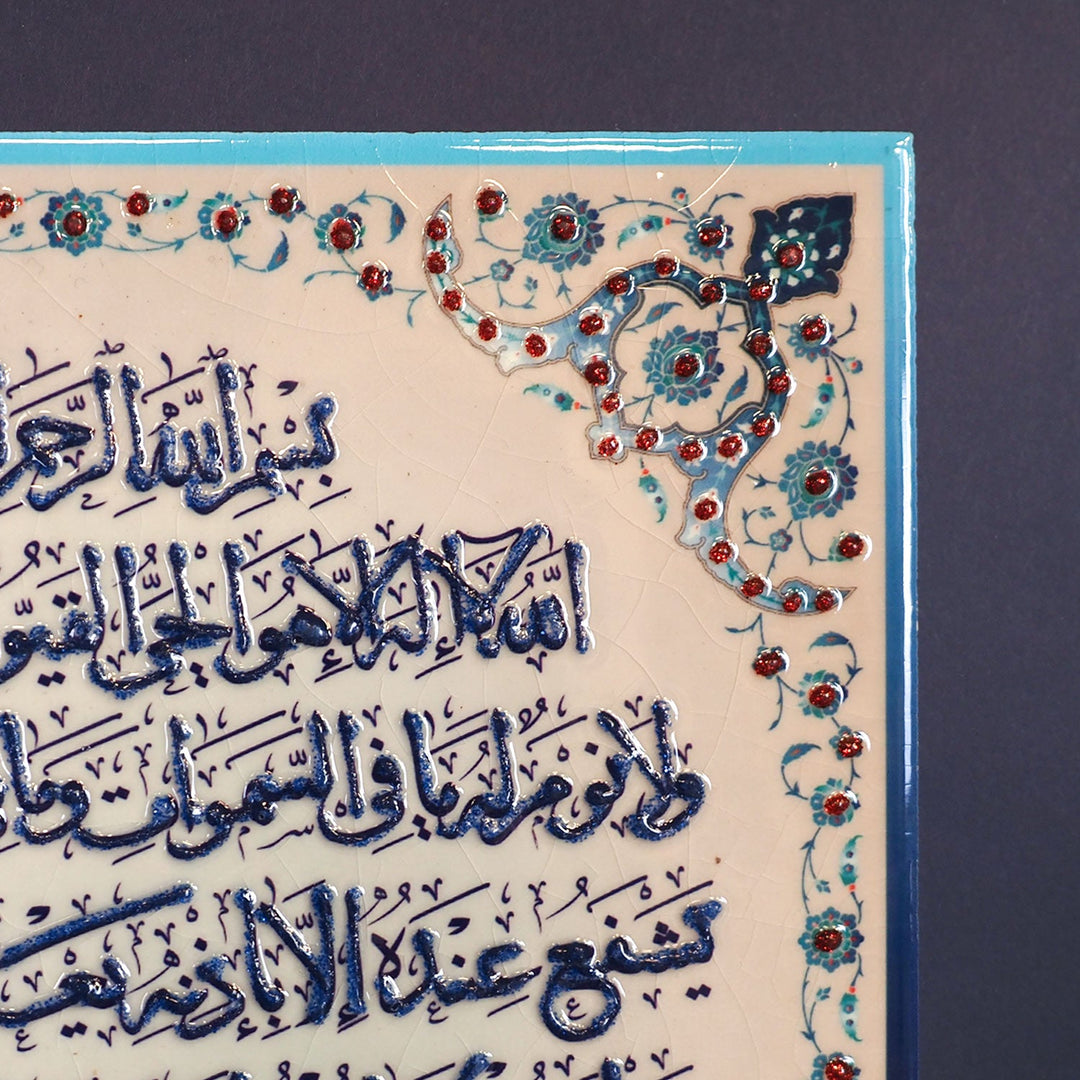 بِسْمِ اللهِ الرَّحْمٰ
اَللّٰهُ لَا إِلٰهَ إِلَّا هُوَ الْحَيُّ الْقَيُّو
وَلَا نَوْمٌ لَهُ مَا فِي السَّمٰوَاتِ وَمَا
يَشْفَعُ عِنْدَهُ إِلَّا بِإِذْنِهِ يَعْ